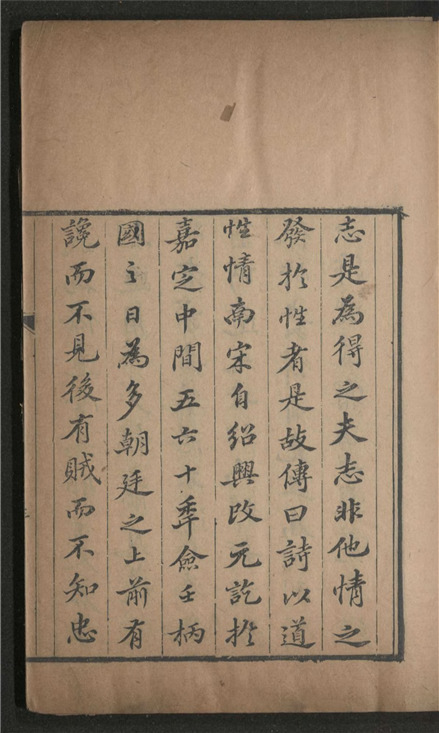 志是為得之夫志非他情之
發於性者是故傳曰詩以道
性情南宋自紹興改元訖於
嘉定中間五六十年僉壬柄
國之日為多朝廷之上前有
讒而不見後有賊而不知忠